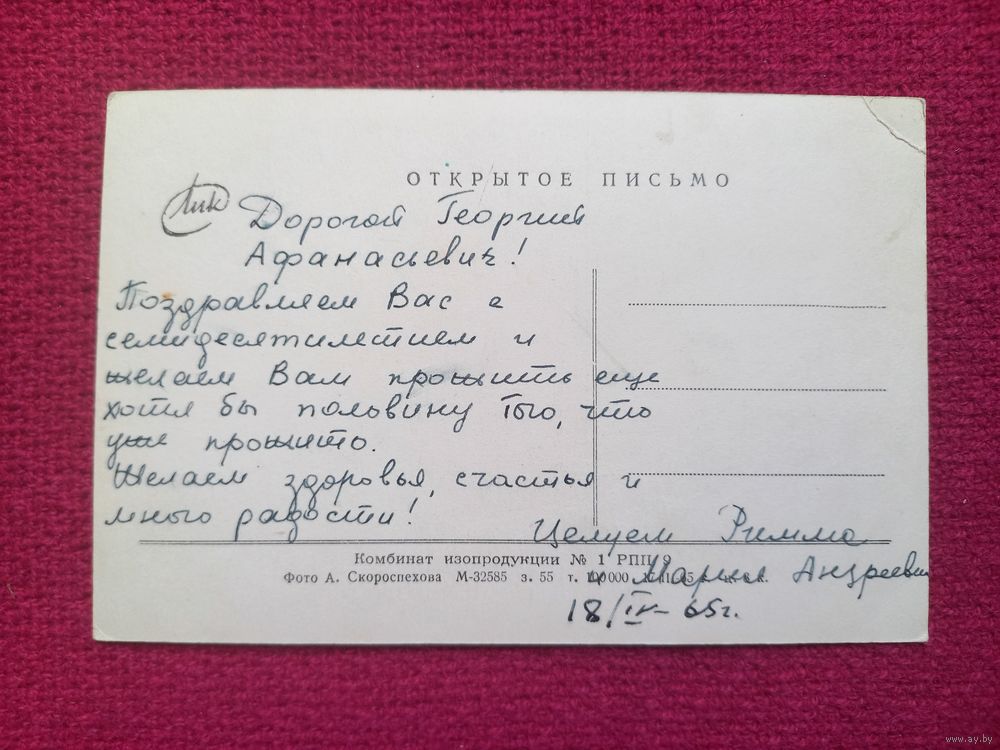 ОТКРЫТОЕ ПИСЬМО
Дорогой Георгий
Афанасьевич!
Поздравляем Вас с
семидесятилетием и
желаем Вам прожить еще
хотя бы половину того, что
уже прожито.
Желаем здоровья, счастья и
много радости!
Целуем Римма
и Мария Андреевна
18/IV-65г.
Комбинат изопродукции № 1 РПП
Фото А. Скороспехова М-32585 з. 55 т.
www.ay.by